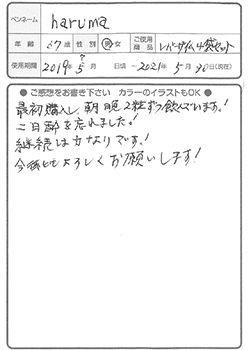 ペンネーム haruma
年齢 67才 性別 男・女 ご使用商品 レバーザイム4袋セット
使用期間 2019年5月 日頃 ～2021年5月30日(現在)
● ご感想をお書き下さい カラーのイラストもOK ●
最初購入し、朝晩2粒ずつ飲んでいます!
二日酔を忘れました!
継続は力なりです!
今後ともよろしくお願いします!